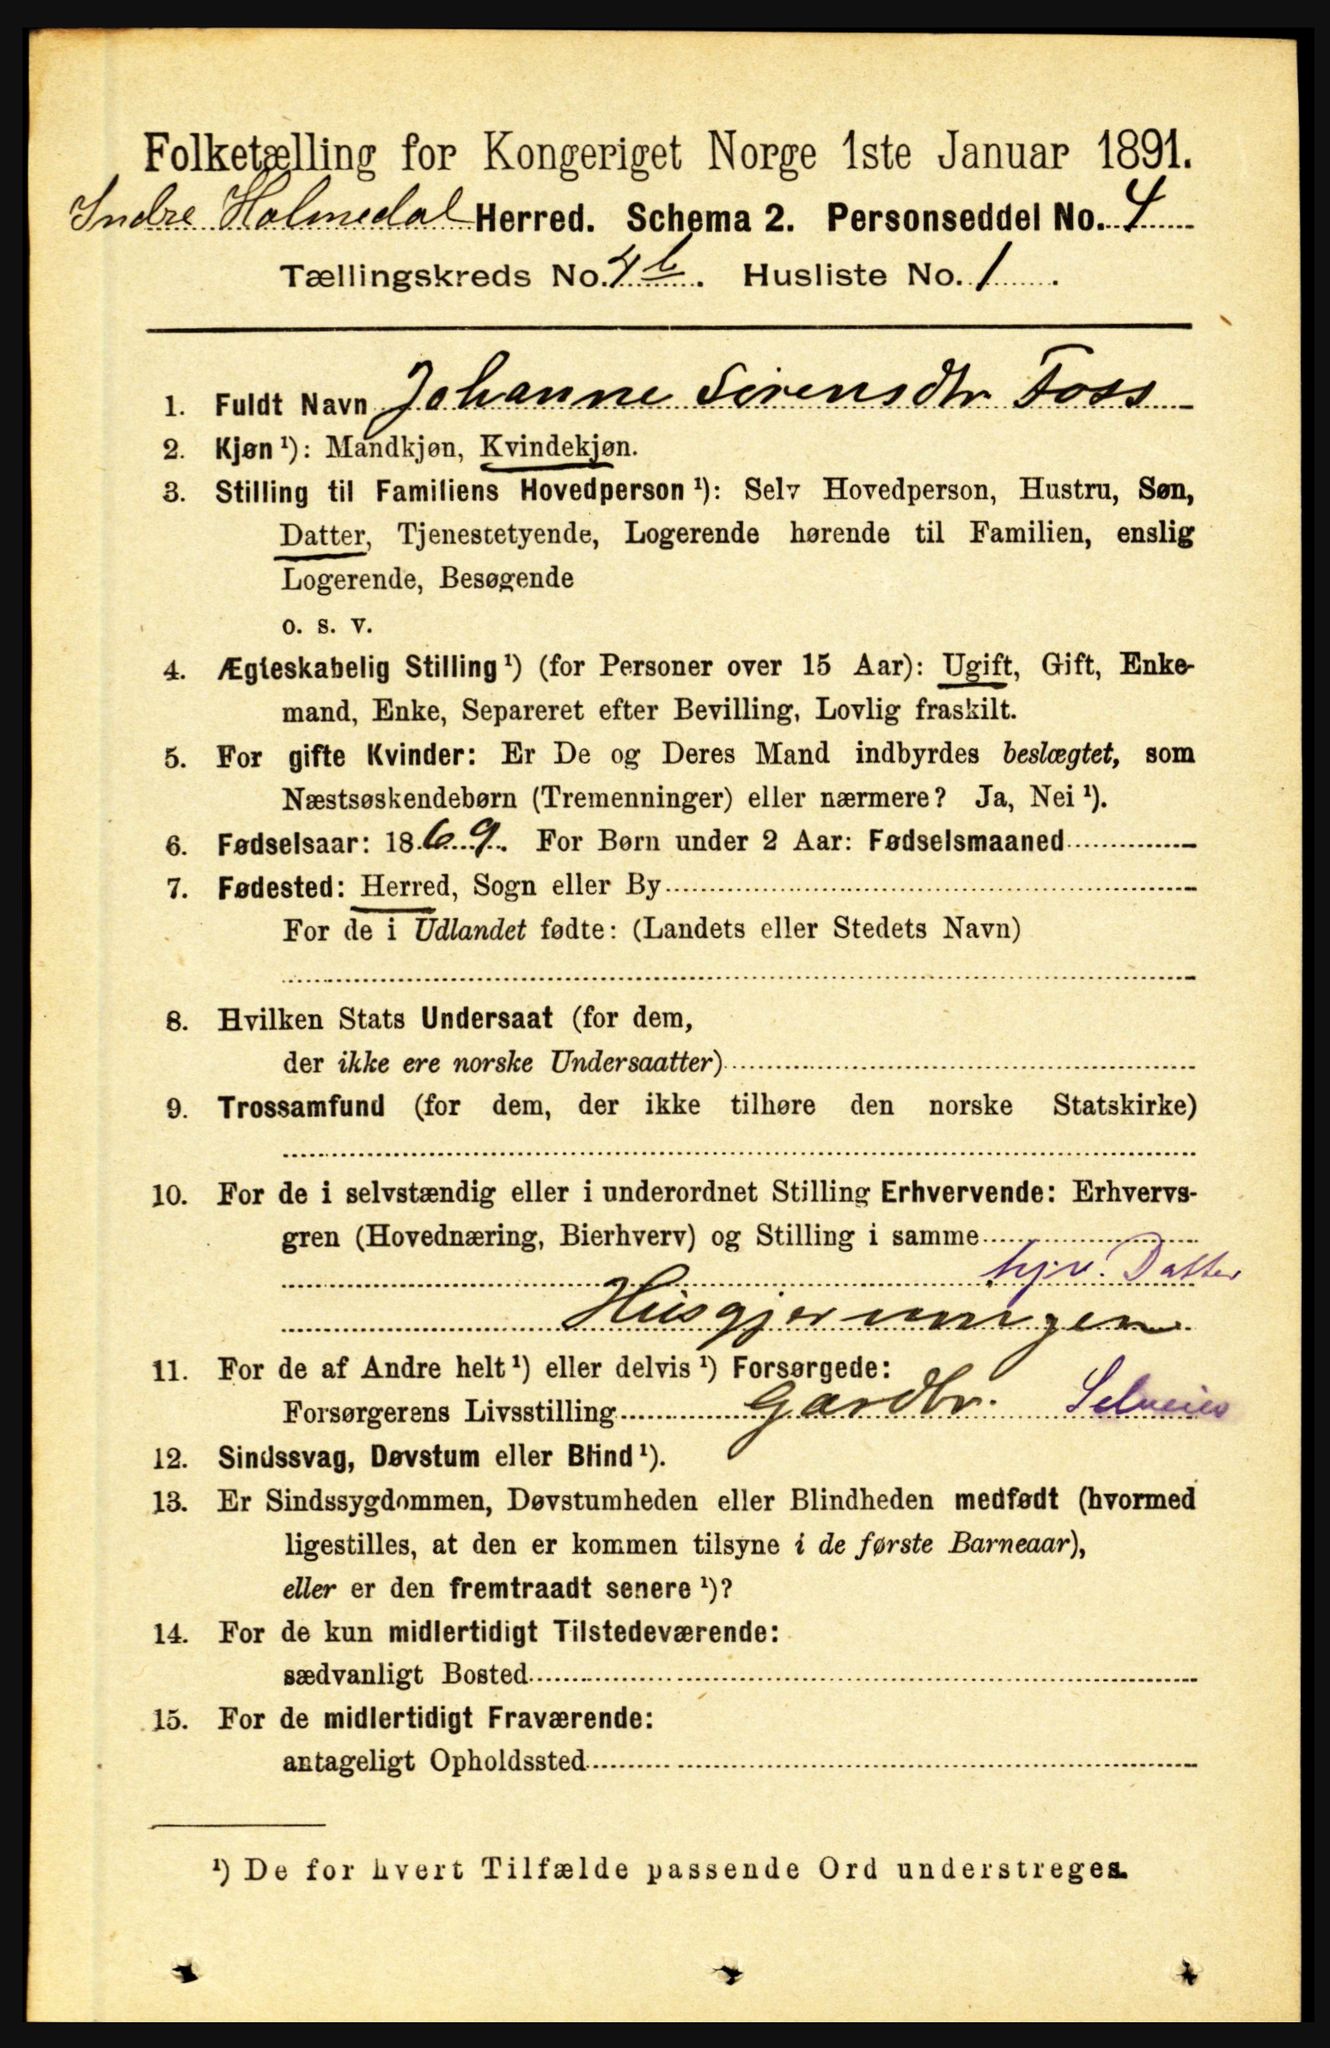 Folketælling for Kongeriget Norge 1ste Januar 1891.
Indre Holmedal Herred. Schema 2. Personseddel No. 4
Tællingskreds No. 4 b. Husliste No. 1.
1. Fuldt Navn Johanne Sirensdtr Foss
2. Kjøn ¹): Mandkjøn, Kvindekjøn.
3. Stilling til Familiens Hovedperson ¹): Selv Hovedperson, Hustru, Søn,
Datter, Tjenestetyende, Logerende hørende til Familien, enslig
Logerende, Besøgende
o. s. v.
4. Ægteskabelig Stilling ¹) (for Personer over 15 Aar): Ugift, Gift, Enke-
mand, Enke, Separeret efter Bevilling, Lovlig fraskilt.
5. For gifte Kvinder: Er De og Deres Mand indbyrdes beslægtet, som
Næstsøskendebørn (Tremenninger) eller nærmere? Ja, Nei ¹).
6. Fødselsaar: 1869. For Børn under 2 Aar: Fødselsmaaned
7. Fødested: Herred, Sogn eller By
For de i Udlandet fødte: (Landets eller Stedets Navn)
8. Hvilken Stats Undersaat (for dem,
der ikke ere norske Undersaatter)
9. Trossamfund (for dem, der ikke tilhøre den norske Statskirke)
10. For de i selvstændig eller i underordnet Stilling Erhvervende: Erhvervs-
gren (Hovednæring, Bierhverv) og Stilling i samme
hjv. Datter
Husgjerningen
11. For de af Andre helt ¹) eller delvis ¹) Forsørgede:
Forsørgerens Livsstilling Gardbr. Selveier
12. Sindssvag, Døvstum eller Blind ¹).
13. Er Sindssygdommen, Døvstumheden eller Blindheden medfødt (hvormed
ligestilles, at den er kommen tilsyne i de første Barneaar),
eller er den fremtraadt senere ¹)?
14. For de kun midlertidigt Tilstedeværende:
sædvanligt Bosted
15. For de midlertidigt Fraværende:
antageligt Opholdssted
¹) De for hvert Tilfælde passende Ord understreges.